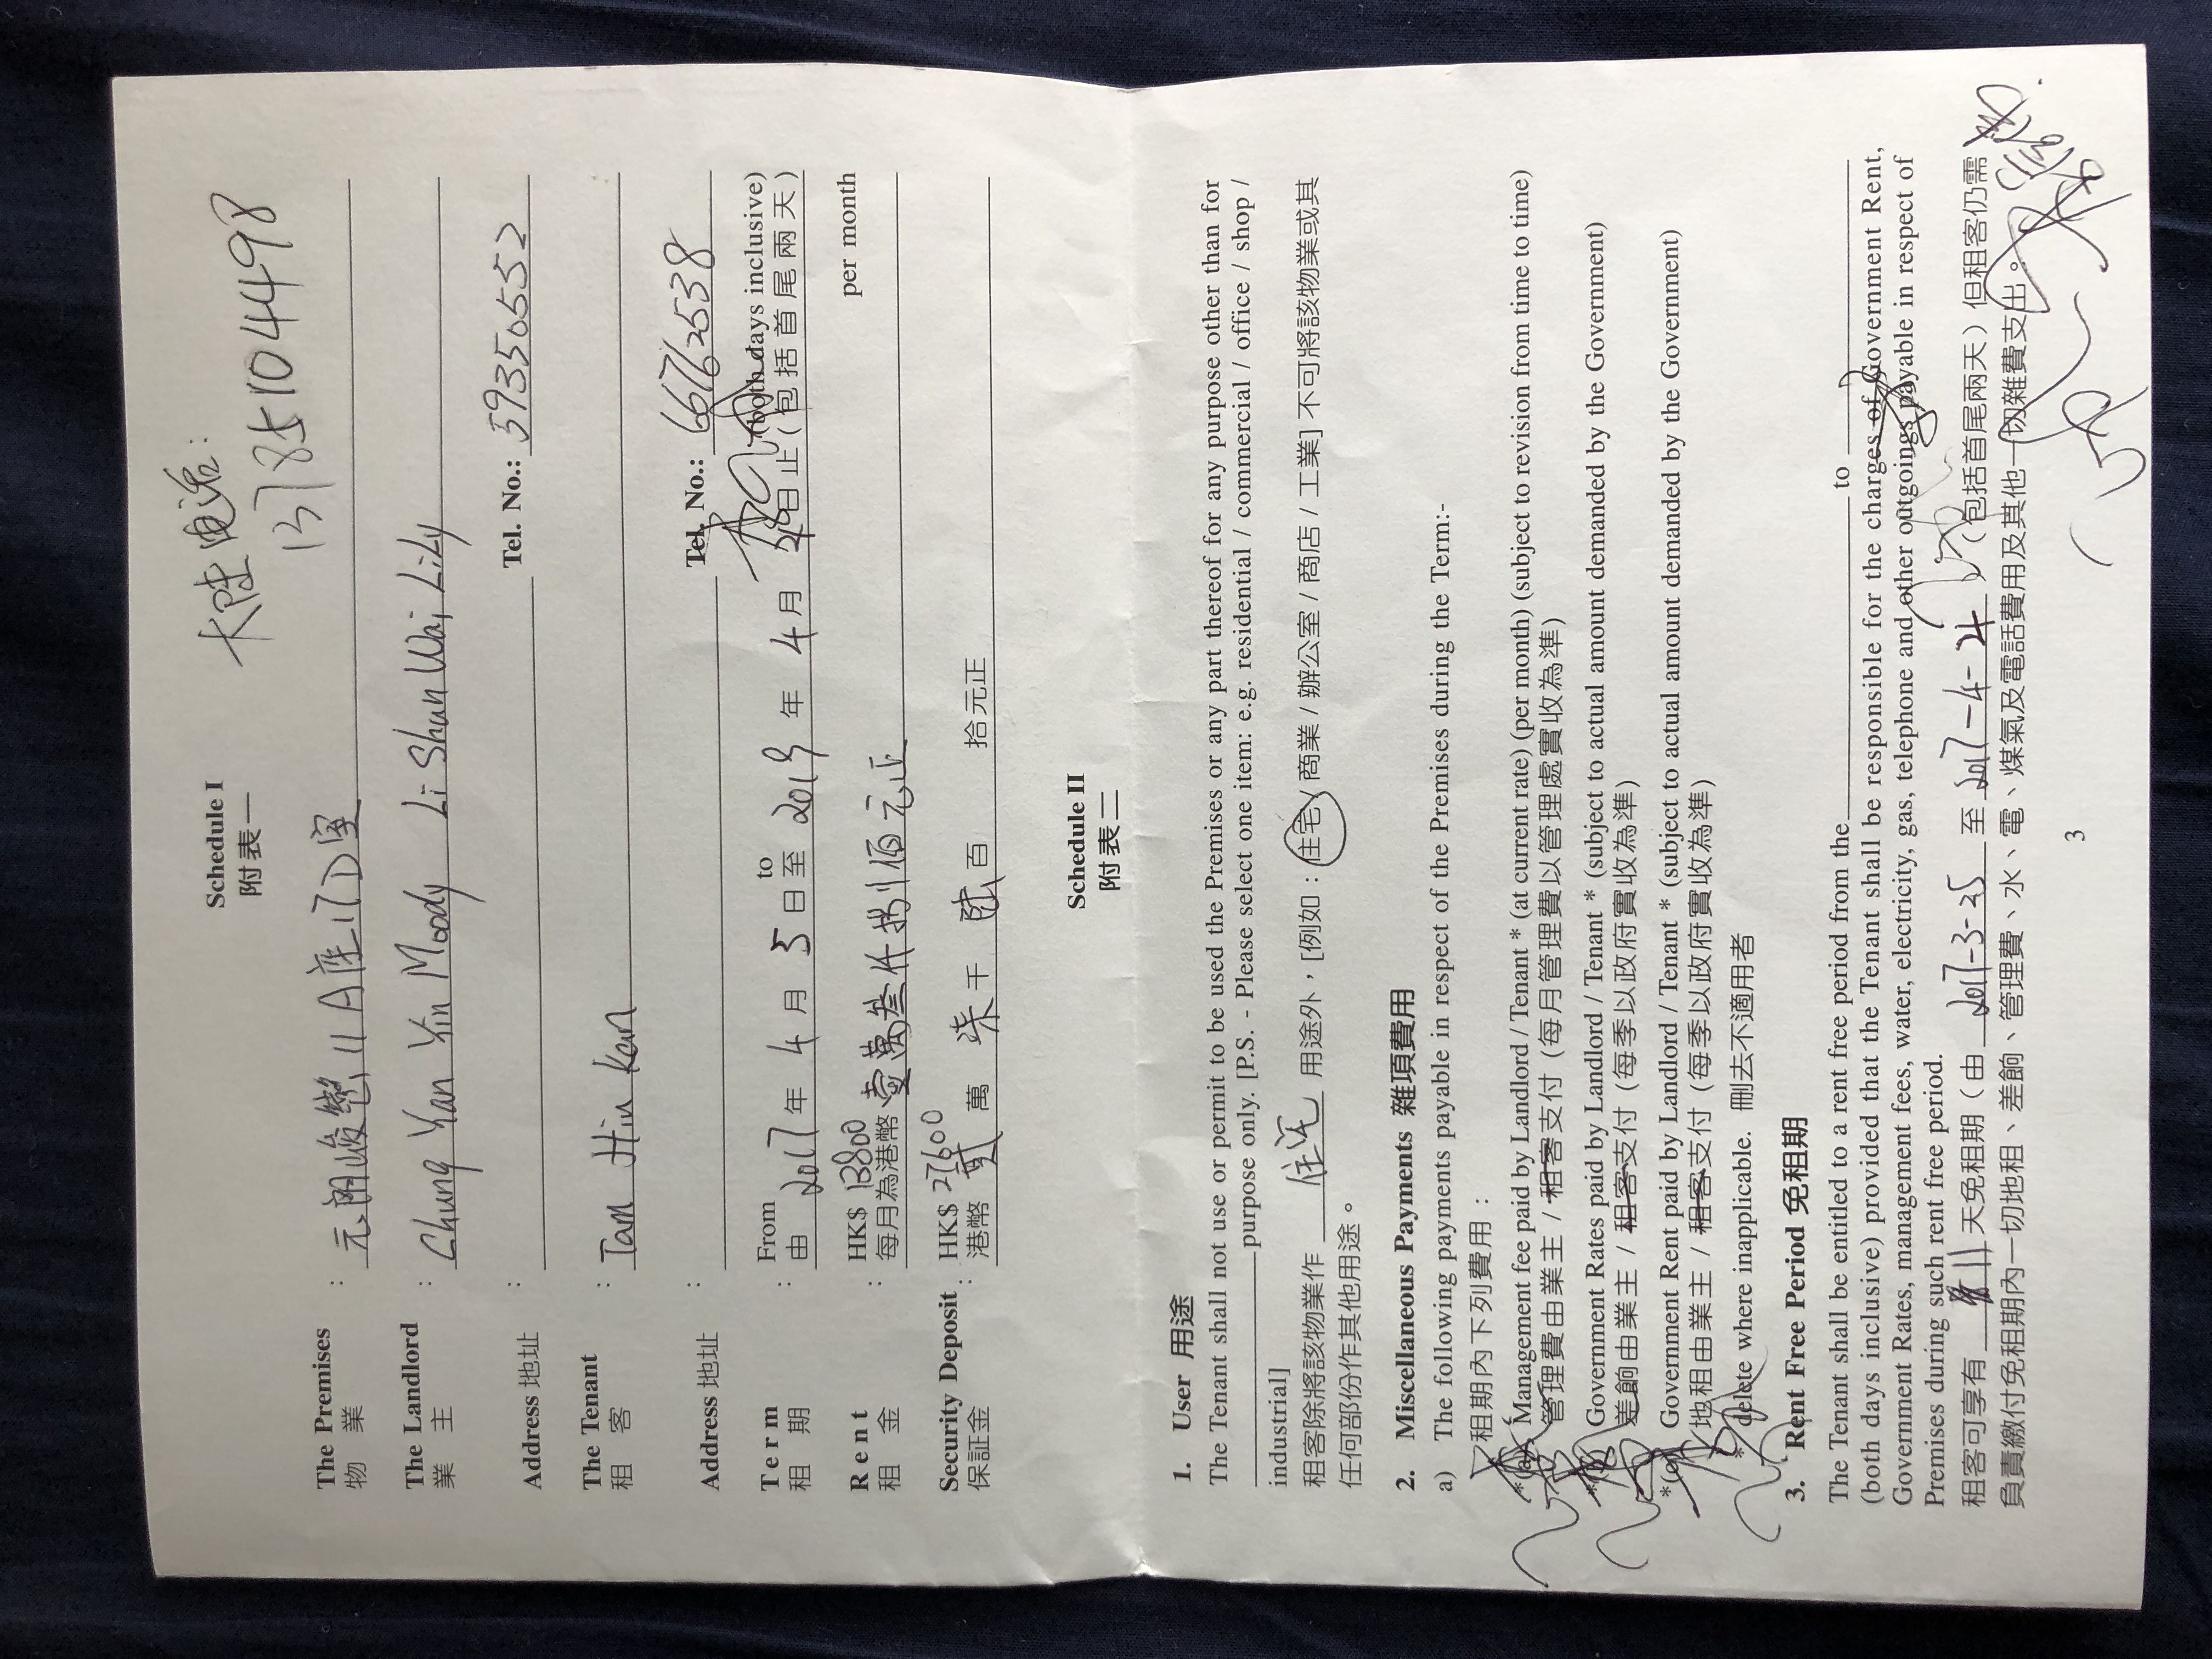 大陸电话:
13785104498
Schedule I
附表一
The Premises : 元朗峻巒11A座17D室
物 業
The Landlord : Chung Yan Yin Moody Li Shun Wai Lily
業 主
Address 地址 : Tel. No.: 59350552
The Tenant : Tam Hiu Kan
租 客
Address 地址 : Tel. No.: 66762538
Term : From to (both days inclusive)
租 期 由 2017 年 4 月 5 日至 2019 年 4 月 4 日止(包括首尾兩天)
Rent : HK$ 13800 per month
租 金 每月為港幣 壹萬叁仟捌佰元正
Security Deposit : HK$ 27600
保証金 港幣 貳 萬 柒 千 陸 百 拾元正
Schedule II
附表二
1. User 用途
The Tenant shall not use or permit to be used the Premises or any part thereof for any purpose other than for
purpose only. [P.S. - Please select one item: e.g. residential / commercial / office / shop /
industrial]
租客除將該物業作 住宅 用途外，[例如：住宅 / 商業 / 辦公室 / 商店 / 工業] 不可將該物業或其
任何部份作其他用途。
2. Miscellaneous Payments 雜項費用
a) The following payments payable in respect of the Premises during the Term:-
租期內下列費用：
*(a) Management fee paid by Landlord / Tenant * (at current rate) (per month) (subject to revision from time to time)
管理費由業主 / 租客支付 (每月管理費以管理處實收為準)
*(b) Government Rates paid by Landlord / Tenant * (subject to actual amount demanded by the Government)
差餉由業主 / 租客支付 (每季以政府實收為準)
*(c) Government Rent paid by Landlord / Tenant * (subject to actual amount demanded by the Government)
地租由業主 / 租客支付 (每季以政府實收為準)
* delete where inapplicable. 刪去不適用者
3. Rent Free Period 免租期
The Tenant shall be entitled to a rent free period from the to
(both days inclusive) provided that the Tenant shall be responsible for the charges of Government Rent,
Government Rates, management fees, water, electricity, gas, telephone and other outgoings payable in respect of
Premises during such rent free period.
租客可享有 11 天免租期（由 2017-3-25 至 2017-4-4 (包括首尾兩天）但租客仍需
負責繳付免租期內一切地租、差餉、管理費、水、電、煤氣及電話費用及其他一切雜費支出。
3